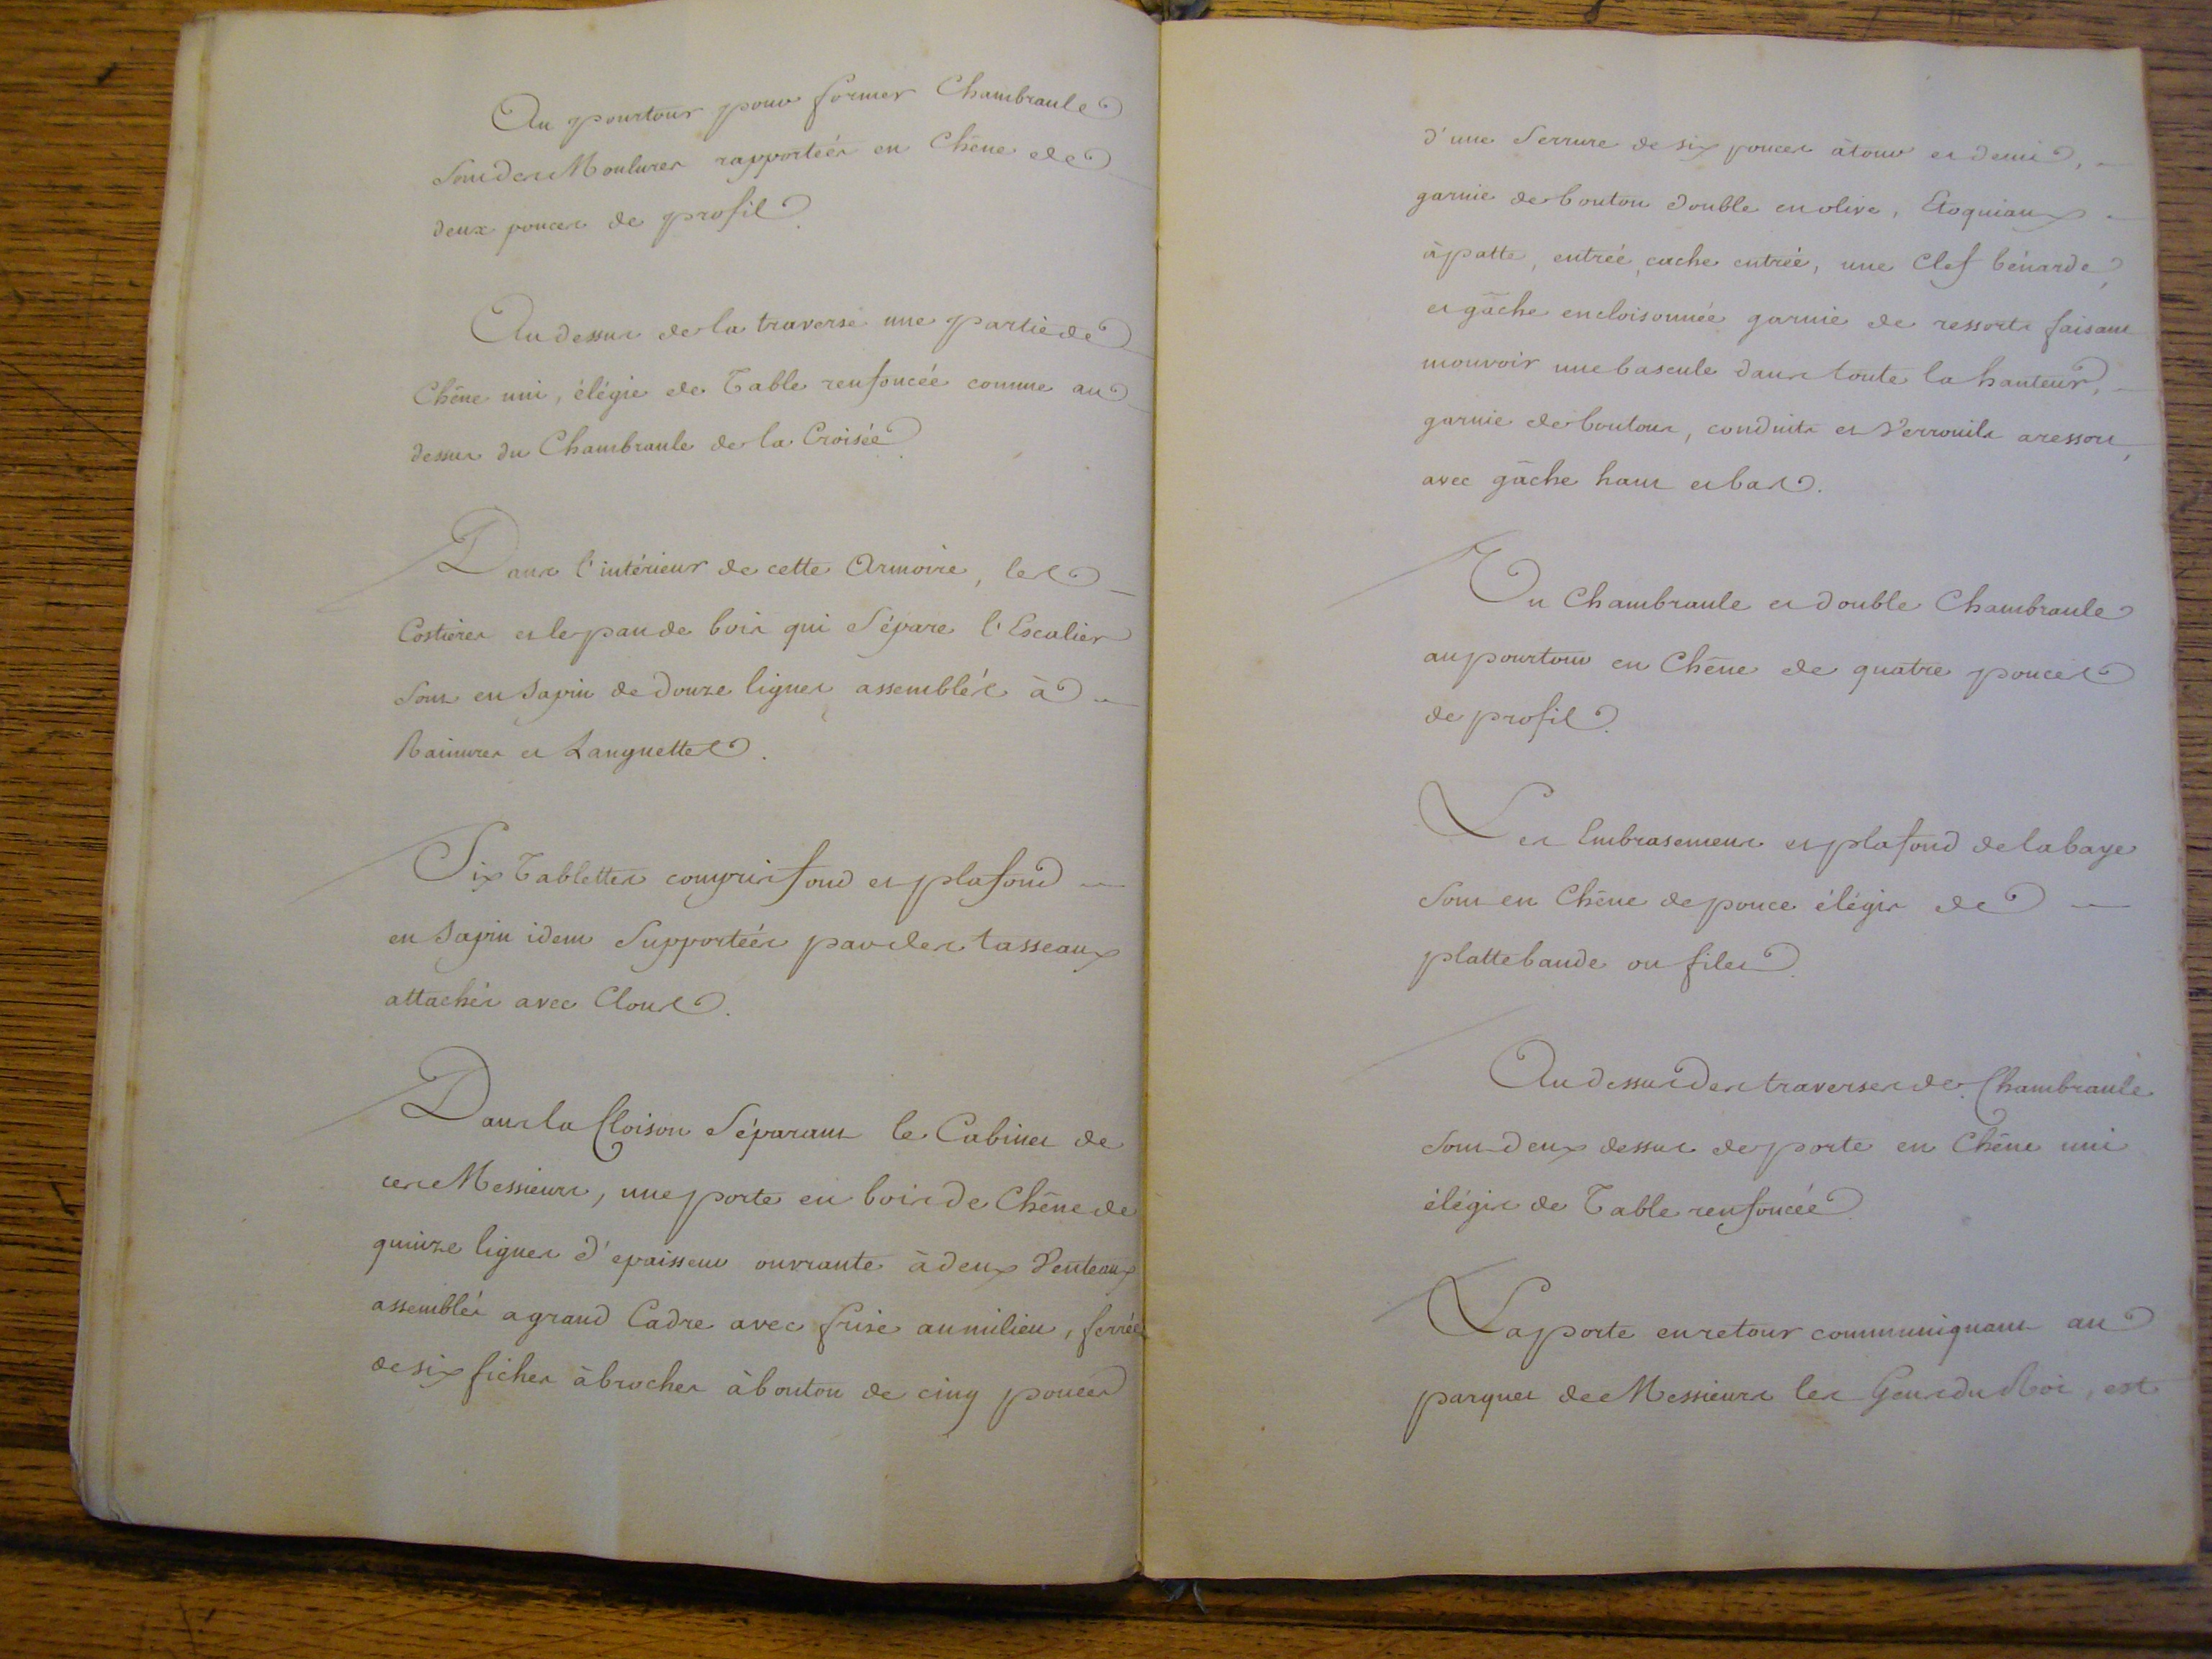 Au pourtour pour former Chambranle
sont des Moulures rapportées en Chêne de
deux pouces de profil.
Au dessus de la traverse une partie de
Chêne uni, élégie de Table renfoncée comme au
dessus du Chambranle de la Croisée.
Dans l'intérieur de cette Armoire, les
Costieres et le pan de bois qui sépare l'Escalier
sont en Sapin de douze lignes assemblés à
Rainures et Languettes.
Six Tablettes compris fond et plafond
en Sapin idem Supportées par des tasseaux
attachés avec Clous.
Dans la Cloison séparant le Cabinet de
ces Messieurs, une porte en bois de Chêne de
quinze lignes d'epaisseur ouvrante à deux Venteaux
assemblés a grand Cadre avec frise au milieu, ferrée
de six fiches à broches à bouton de cinq pouces
d'une Serrure de six pouces à tour et demi,
garnie de bouton double en olive, Etoquiaux
à patte, entrée, cache entrée, une Clef bénarde,
et gâche encloisonnée garnie de ressorts faisant
mouvoir une bascule dans toute la hauteur,
garnie de boutons, conduits et Verrouils a ressort,
avec gâche haut et bas.
Un Chambranle et double Chambranle
au pourtour en Chêne de quatre pouces
de profil.
Les Embrasemens et plafond de la baye
sont en Chêne de pouce élégis de
plattebande ou filet.
Au dessus des traverses de Chambranle
sont deux dessus de porte en Chêne uni
élégis de Table renfoncée.
La porte en retour communiquant au
parquet de Messieurs les Gens du Roi, est